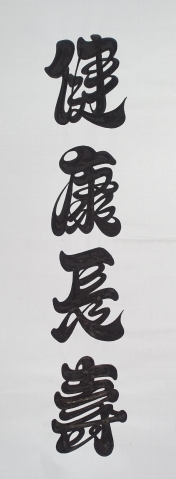 健康長壽